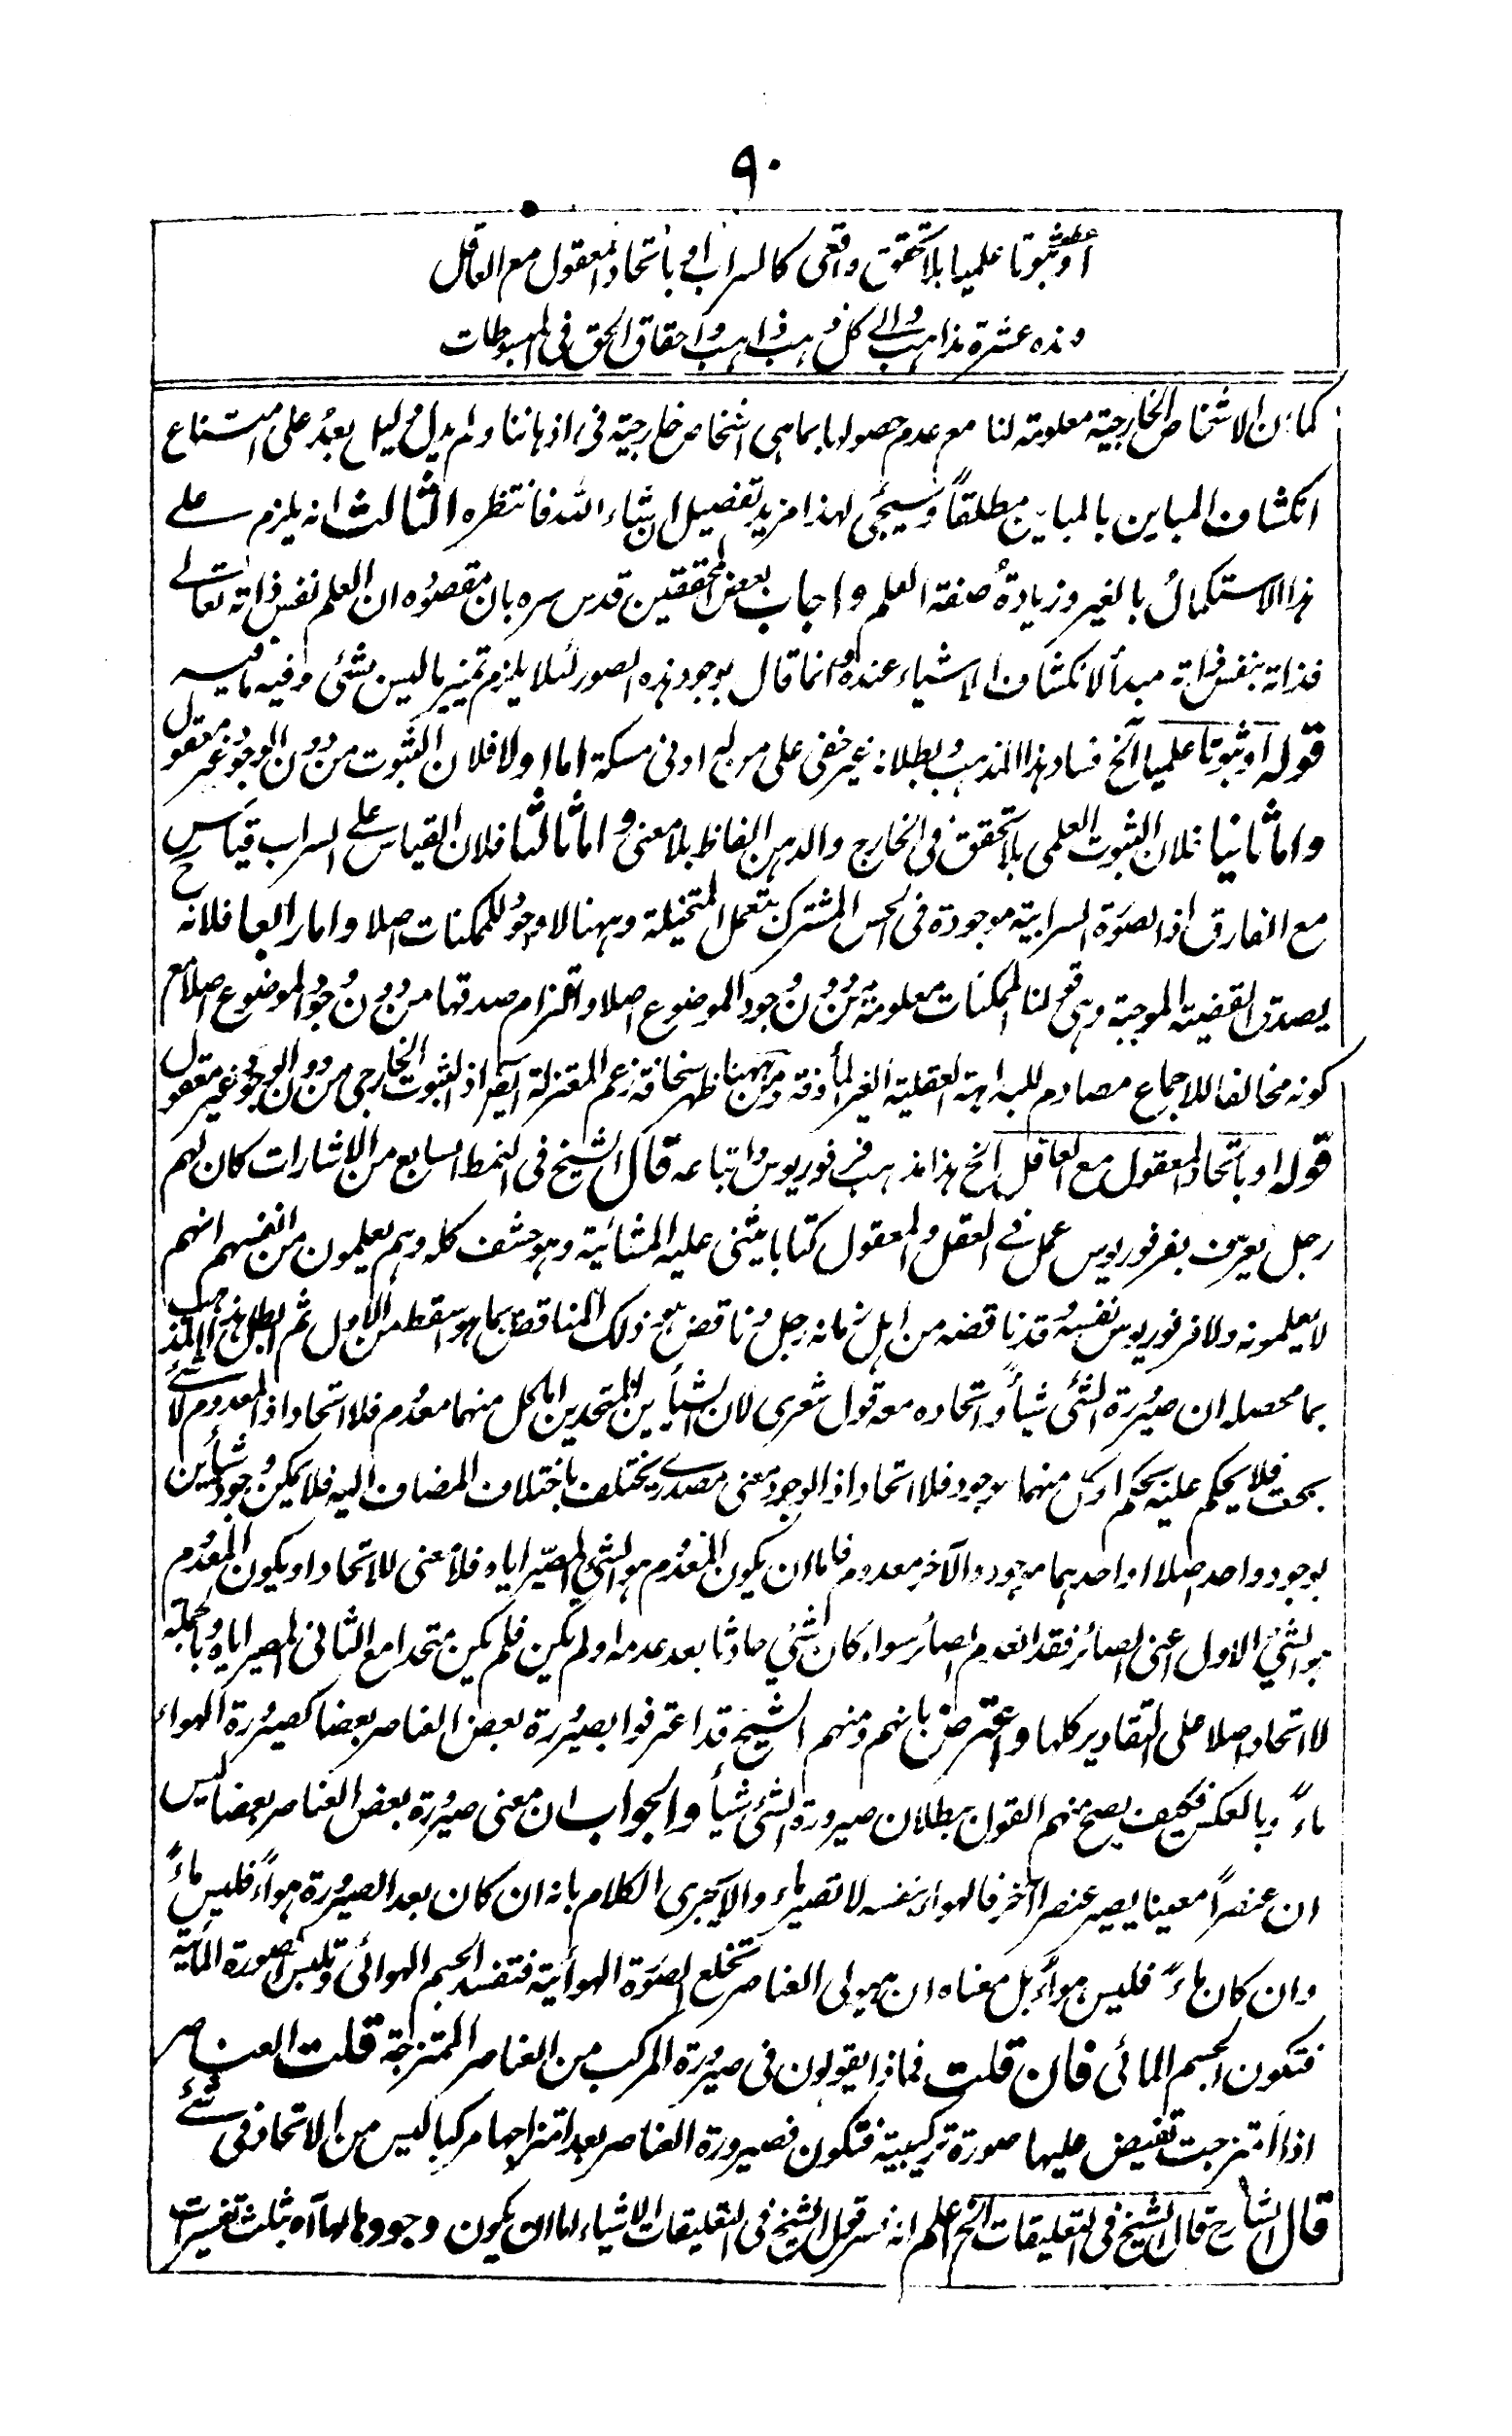 ٩٠
او ثبوتا علميا بلا تحقق واقعى كالسراب او باتحاد المعقول مع العاقل
وهذه عشرة مذاهب والى كل ذهب ذاهب واحقاق الحق فى المبسوطات
كما ان الاشخاص الخارجية معلومة لنا مع عدم حصولها بما هى اشخاص خارجية فى اذهاننا ولم يدل دليل بعد على امتناع
انكشاف المباين بالمباين مطلقاً وسيجئ لهذا مزيد تفصيل ان شاء الله فانتظره الثالث انه يلزم على
هذا الاستكمال بالغير وزيادة صفة العلم واجاب بعض المحققين قدس سره بان مقصوده ان العلم نفس ذاته تعالى
فذاته بنفس ذاته مبدأ لانكشاف الاشياء عنده وانما قال بوجود هذه الصور لئلا يلزم تميز ما ليس بشئ وفيه ما فيه
قوله او ثبوتا علميا الخ فساد هذا المذهب وبطلانه غير خفى على من له ادنى مسكة اما اولا فلان الثبوت من دون الوجود غير معقول
واما ثانيا فلان الثبوت العلمى بلا تحقق فى الخارج والذهن الفاظ بلا معنى واما ثالثا فلان القياس على السراب قياس
مع الفارق اذ الصورة السرابية موجودة فى الحس المشترك بتعمل المتخيلة وههنا لا وجود للممكنات اصلا واما رابعا فلانه ح
يصدق القضية الموجبة وهى قولنا الممكنات معلومة من دون وجود الموضوع اصلا والتزام صدقها من دون وجود الموضوع اصلا مع
كونه مخالفا للاجماع مصادم للبداهة العقلية الغير المأوفة ومن ههنا ظهر سخافة زعم المعتزلة ايضا اذ الثبوت الخارجى من دون الوجود غير معقول
قوله او باتحاد المعقول مع العاقل الخ هذا مذهب فرفوريوس واتباعه قال الشيخ فى النمط السابع من الاشارات كان لهم
رجل يعرف بفرفوريوس عمل فى العقل والمعقول كتابا يثنى عليه المشائية وهو حشف كله وهم يعلمون من انفسهم انهم
لا يعلمونه ولا فرفوريوس نفسه وقد ناقضه من اهل زمانه رجل وناقض هو ذلك المناقض بما هو اسقط من الاول ثم ابطل هذا المذهب
بما محصله ان صيرورة الشئ شيأً واتحاده معه قول شعرى لان الشيأين المتحدين اما كل منهما معدوم فلا اتحاد اذ المعدوم لا شئ
بحت فلا يحكم عليه بحكم او كل منهما موجود فلا اتحاد اذ الوجود معنى مصدرى يختلف باختلاف المضاف اليه فلا يمكن وجود شيأين
بوجود واحد اصلا او احدهما موجود والآخر معدوم فاما ان يكون المعدوم هو الشئ المصير اياه فلا معنى للاتحاد او يكون المعدوم
هو الشئ الاول اعنى الصائر فقد انعدم الصائر سواء كان الشئ حادثا بعد عدمه او لم يكن فلم يكن متحدا مع الثانى المصير اياه وبالجملة
لا اتحاد اصلا على التقادير كلها واعترض بانهم ومنهم الشيخ قد اعترفوا بصيرورة بعض العناصر بعضا كصيرورة الهواء
ماءً وبالعكس فكيف يصح منهم القول ببطلان صيرورة الشئ شيأ والجواب ان معنى صيرورة بعض العناصر بعضا ليس
ان عنصراً معينا يصير عنصرا آخر فالهواء بنفسه لا تصير ماء والا يجرى الكلام بانه ان كان بعد الصيرورة هواءً فليس ماءً
وان كان ماءً فليس هواءً بل معناه ان هيولى العناصر تخلع الصورة الهوائية فتفسد الجسم الهوائى وتلبس الصورة المائية
فتكون الجسم المائى فان قلت فماذا يقولون فى صيرورة المركب من العناصر الممتزجة قلت العناصر
اذا امتزجت تفيض عليها صورة تركيبية فتكون فصيرورة العناصر بعد امتزاجها مركبا ليس من الاتحاد فى شئ
قال الشارح قال الشيخ فى التعليقات الخ اعلم انه فسر قول الشيخ فى التعليقات الاشياء اما ان يكون وجودها لها آه بثلث تفسيرات